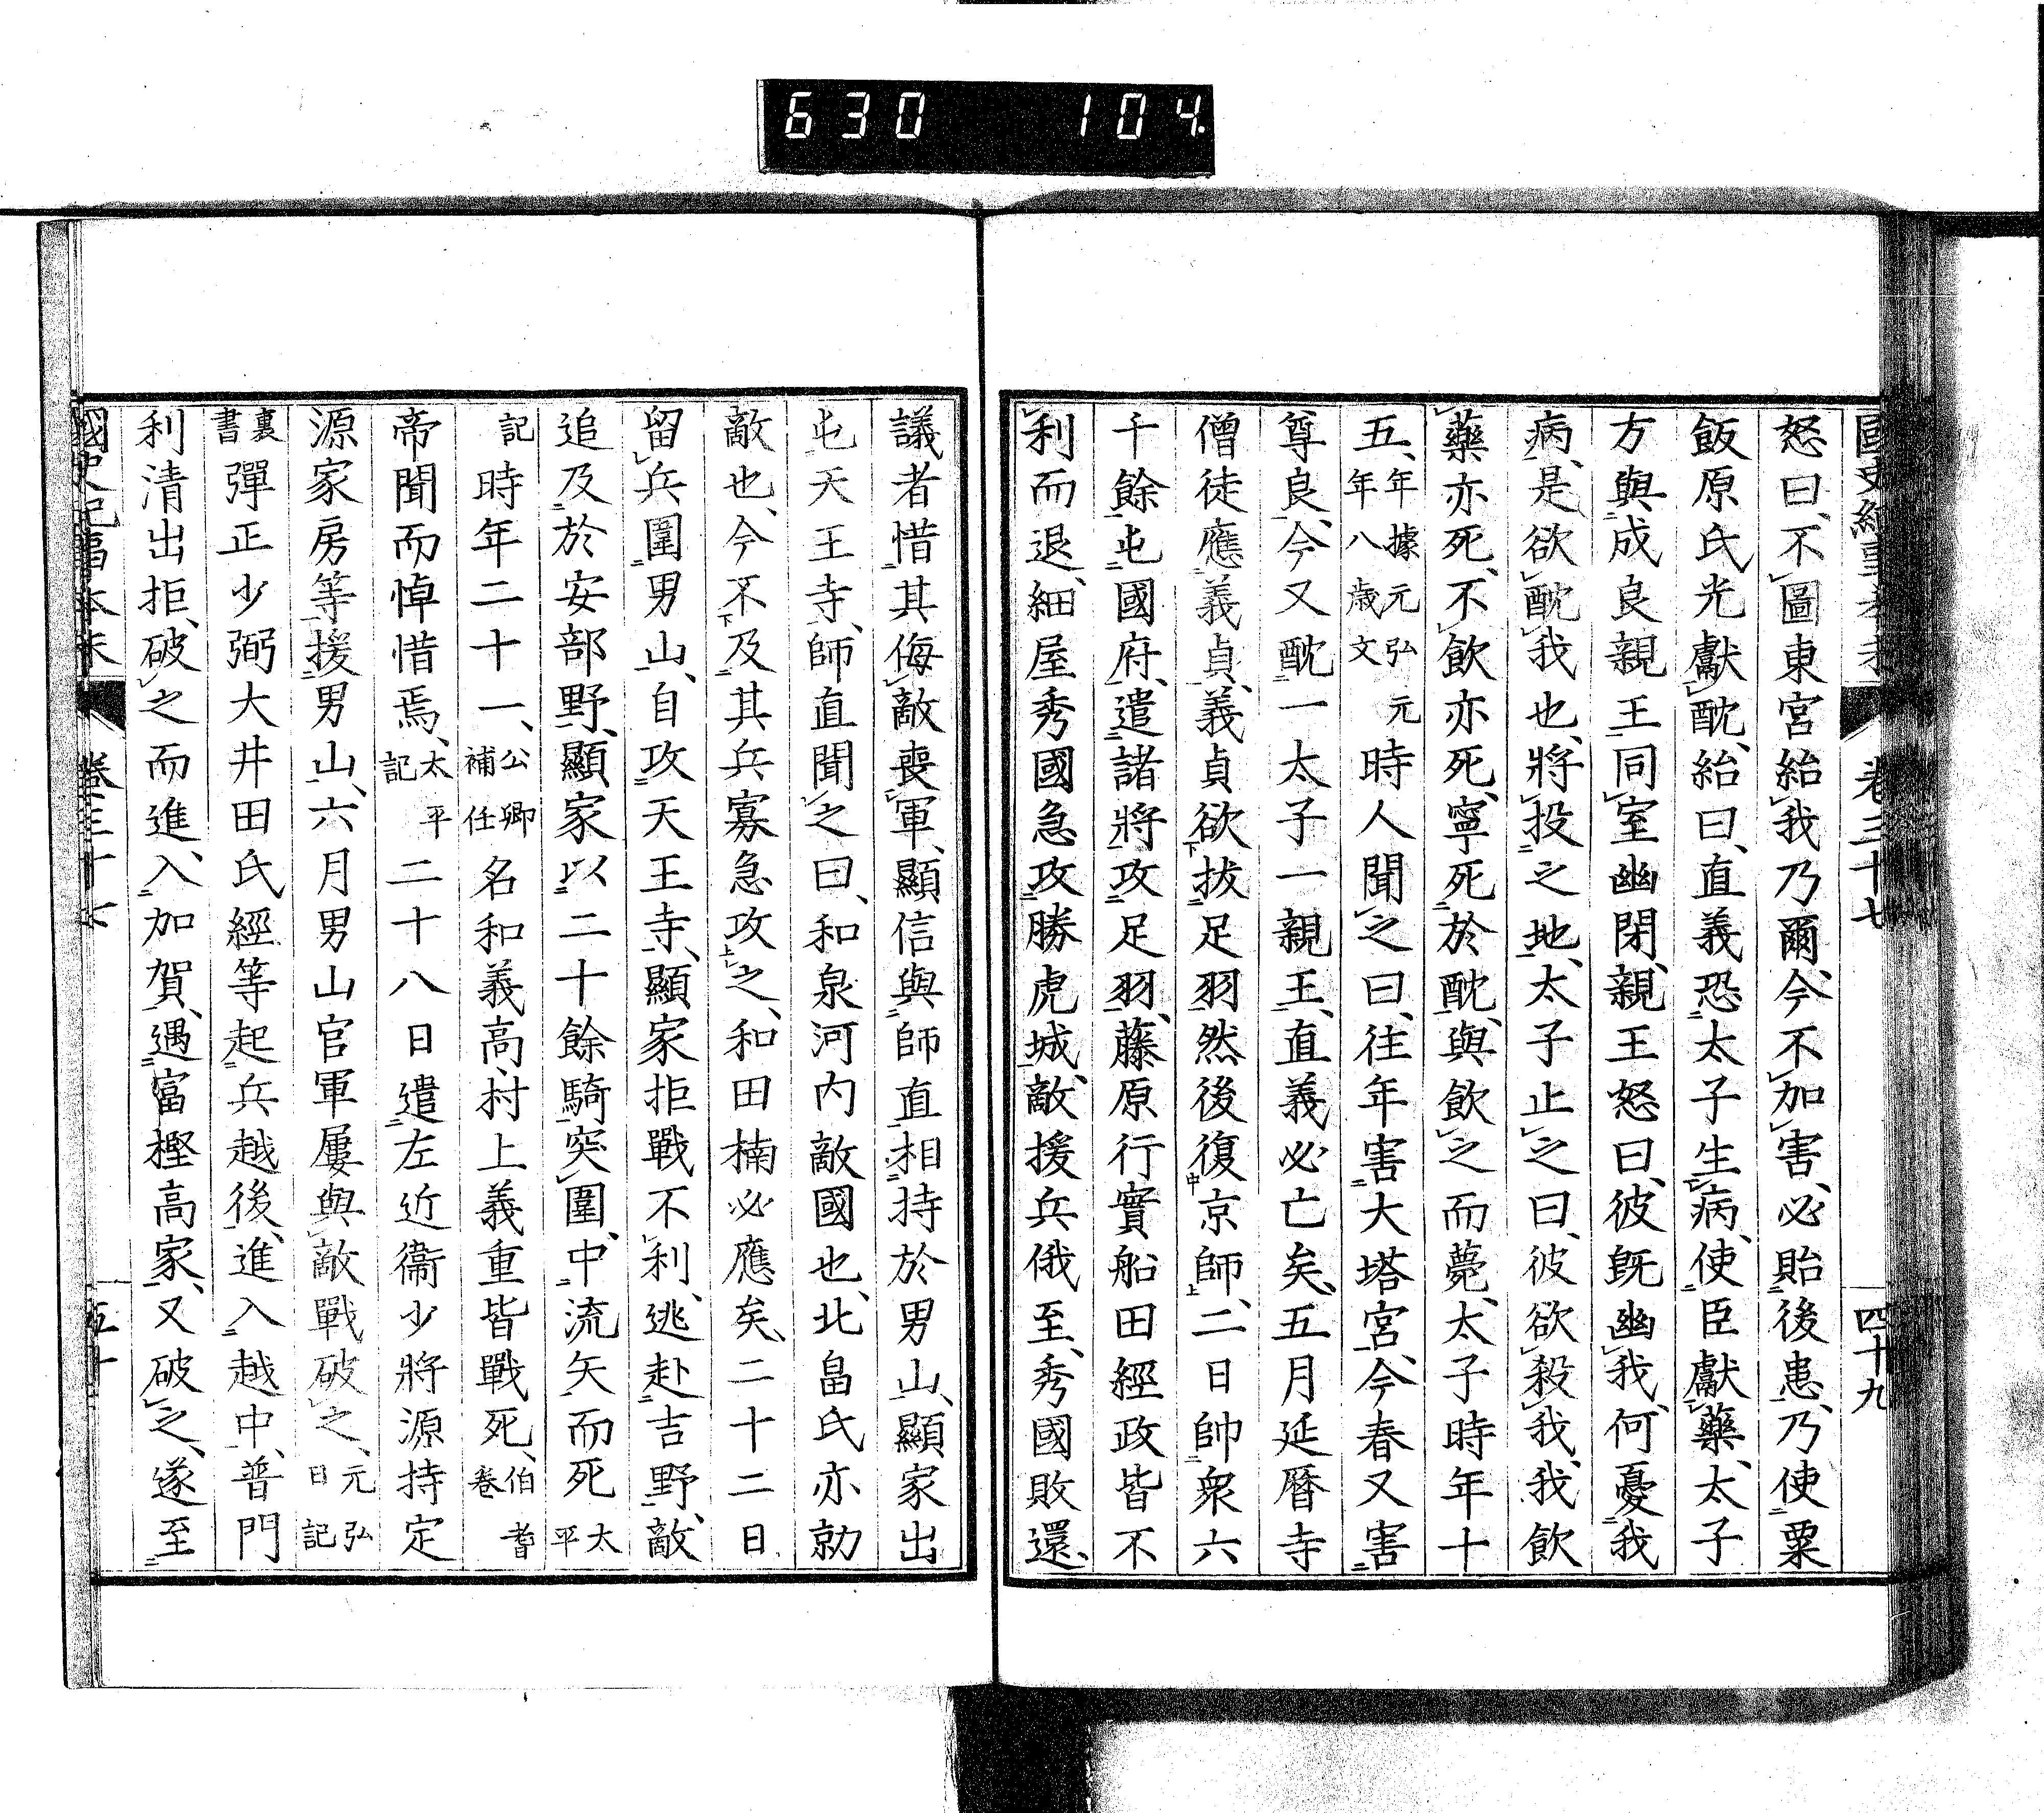 630 104.
國史紀事本末 卷三十七 四十九
怒曰、不圖東宮紿我乃爾、今不加害、必貽後患、乃使粟
飯原氏光獻酖、紿曰、直義恐太子生病、使臣獻藥、太子
方與成良親王同室幽閉、親王怒曰、彼既幽我、何憂我
病、是欲酖我也、將投之地、太子止之曰、彼欲殺我、我飲
藥亦死、不飲亦死、寧死於酖、與飲之而薨、太子時年十
五、年據元弘元年八歳文時人聞之曰、往年害大塔宮、今春又害
尊良、今又酖一太子一親王、直義必亡矣、五月延曆寺
僧徒應義貞、義貞欲下拔足羽然後復中京師上、二日帥衆六
千餘屯國府、遣諸將攻足羽、藤原行實船田經政皆不
利而退、細屋秀國急攻勝虎城、敵援兵俄至、秀國敗還、
議者惜其侮敵喪軍、顯信與師直相持於男山、顯家出
屯天王寺、師直聞之曰、和泉河内敵國也、北畠氏亦勍
敵也、今不下及其兵寡急攻上之、和田楠必應矣、二十二日
留兵圍男山、自攻天王寺、顯家拒戰不利、逃赴吉野、敵
追及於安部野、顯家以二十餘騎突圍、中流矢而死太平
記時年二十一、公卿補任名和義高、村上義重皆戰死、伯耆卷
帝聞而悼惜焉、太平記二十八日遣左近衞少將源持定
源家房等援男山、六月男山官軍屢與敵戰破之、元弘日記
裏書彈正少弼大井田氏經等起兵越後、進入越中、普門
利清出拒、破之而進、入加賀、遇富樫高家、又破之、遂至
國史紀事本末 卷三十七 五十